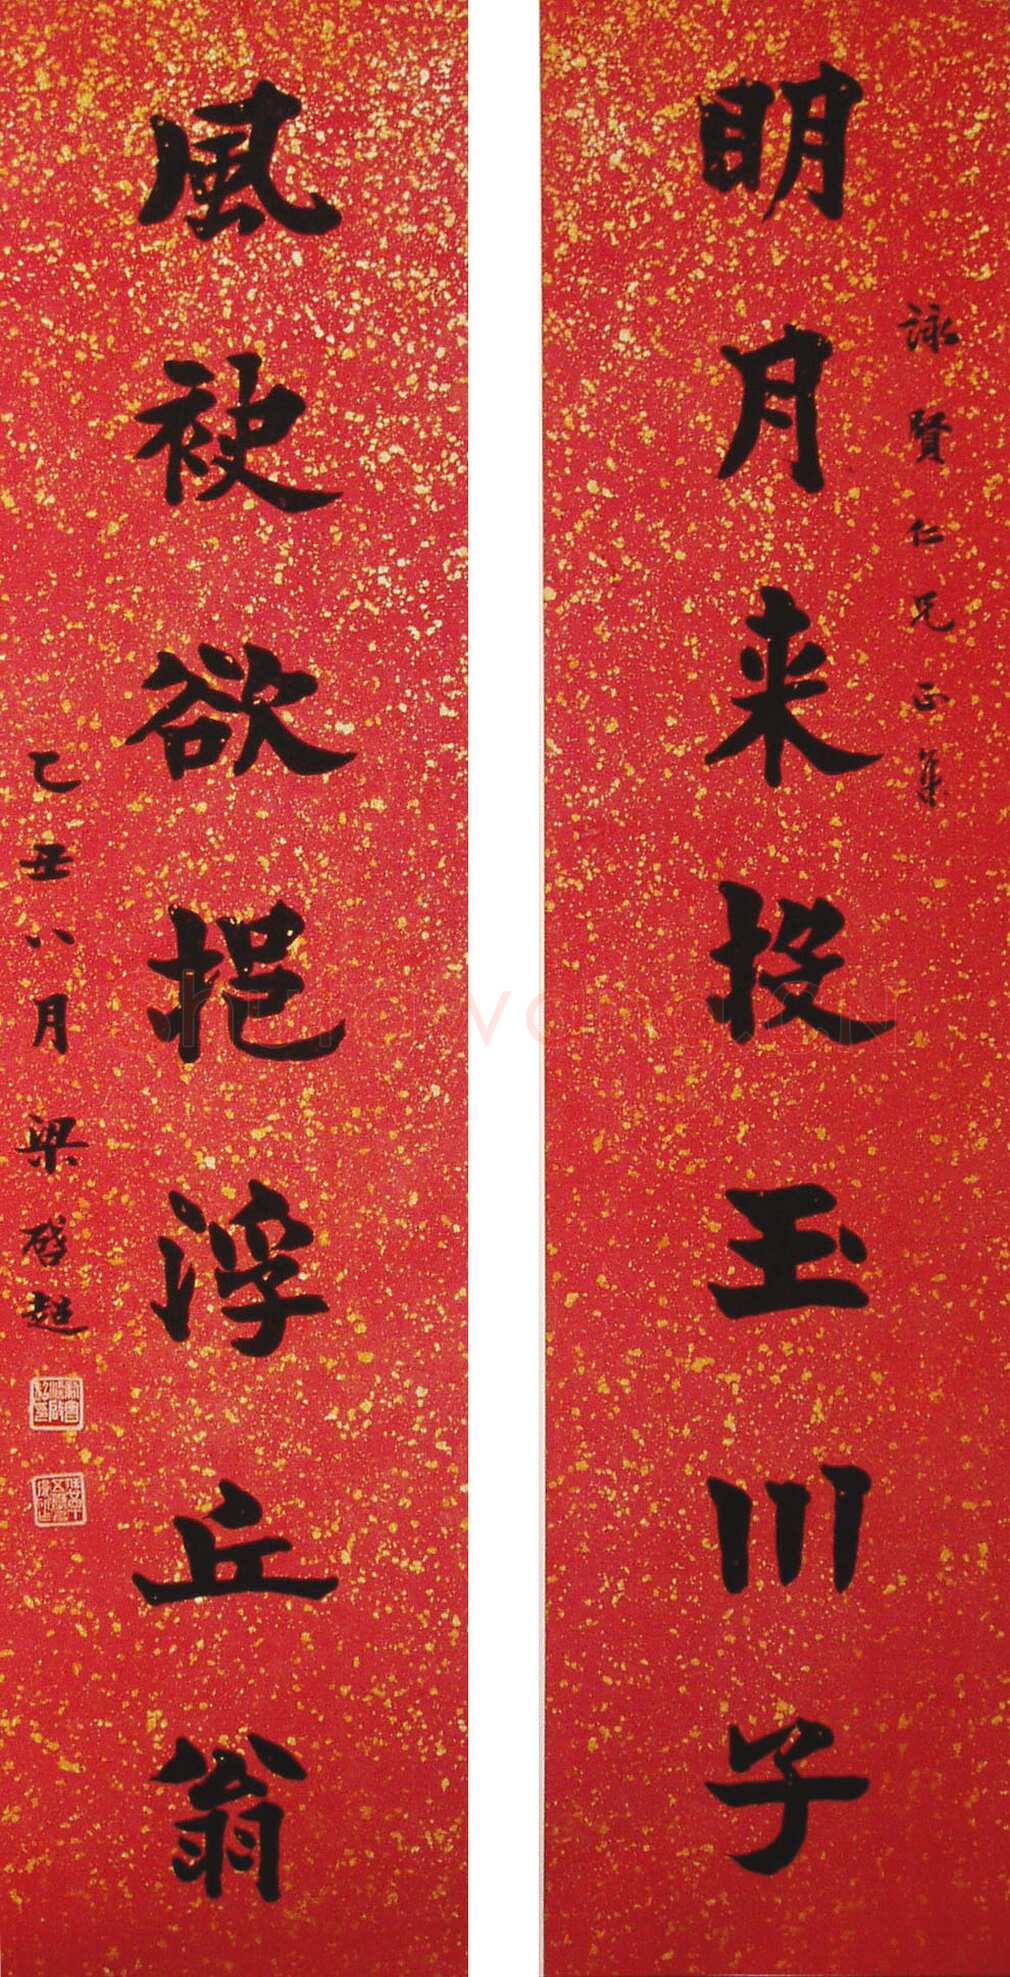 詠賢仁兄正集
明月来投玉川子
風袂欲挹浮丘翁
乙丑八月梁啓超
新會梁啟超印